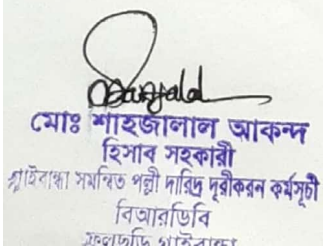 মোঃ শাহজালাল আকন্দ
হিসাব সহকারী
গাইবান্ধা সমন্বিত পল্লী দারিদ্র দূরীকরন কর্মসূচী
বিআরডিবি
ফুলছড়ি গাইবান্ধা